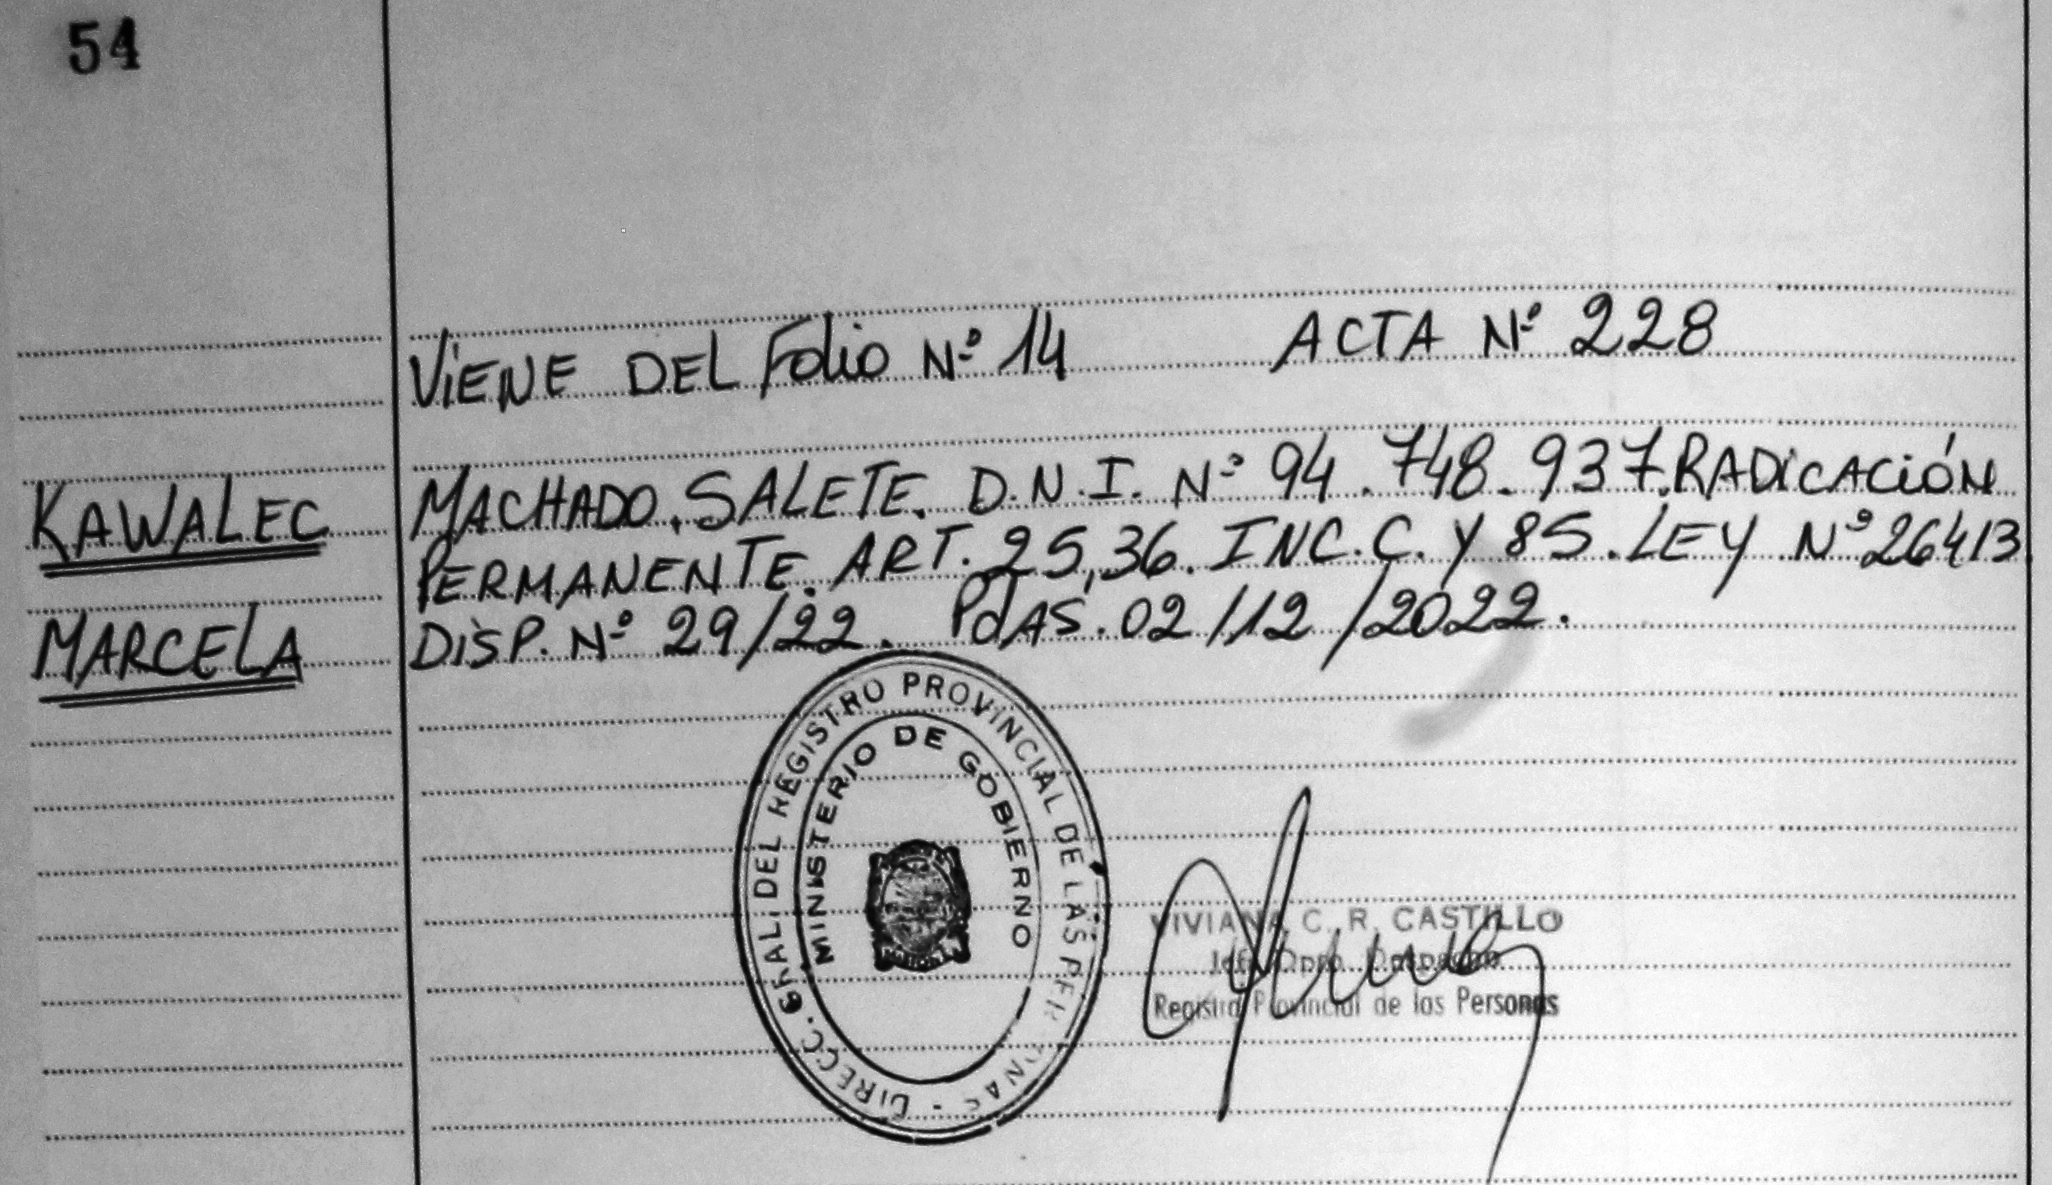 54
VIENE DEL Folio Nº 14 ACTA Nº 228
KAWALEC
MARCELA
MACHADO, SALETE. D.N.I. Nº 94.748.937. RADICACIÓN
PERMANENTE. ART. 25,36. INC.C. Y 85. LEY Nº 26413
DISP. Nº 29/22. PdAS. 02/12/2022.
DIRECC. GRAL. DEL REGISTRO PROVINCIAL DE LAS PERSONAS -
MINISTERIO DE GOBIERNO
VIVIANA C. R. CASTILLO
Jefe Dpto. Despacho
Registro Provincial de las Personas